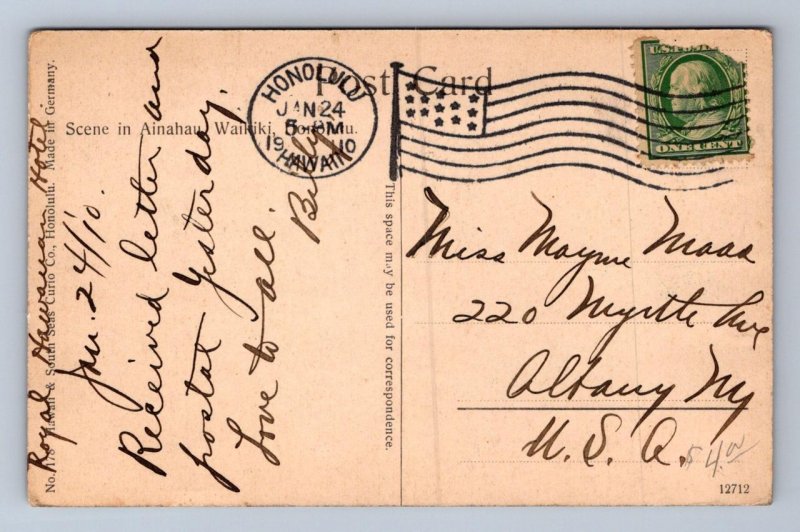 Post Card
Scene in Ainahau, Waikiki, Honolulu.
No. 178 Hawaii & South Seas Curio Co., Honolulu. Made in Germany.
HONOLULU
JAN 24
5 PM
1910
HAWAII
U.S.
ONE CENT
This space may be used for correspondence.
Royal Hawaiian Hotel
Jan. 24/10.
Received letter and
postal yesterday.
Love to all.
Miss Mayme Maas
220 Myrtle Ave
Albany Ny
U. S. A.
$4.00
12712